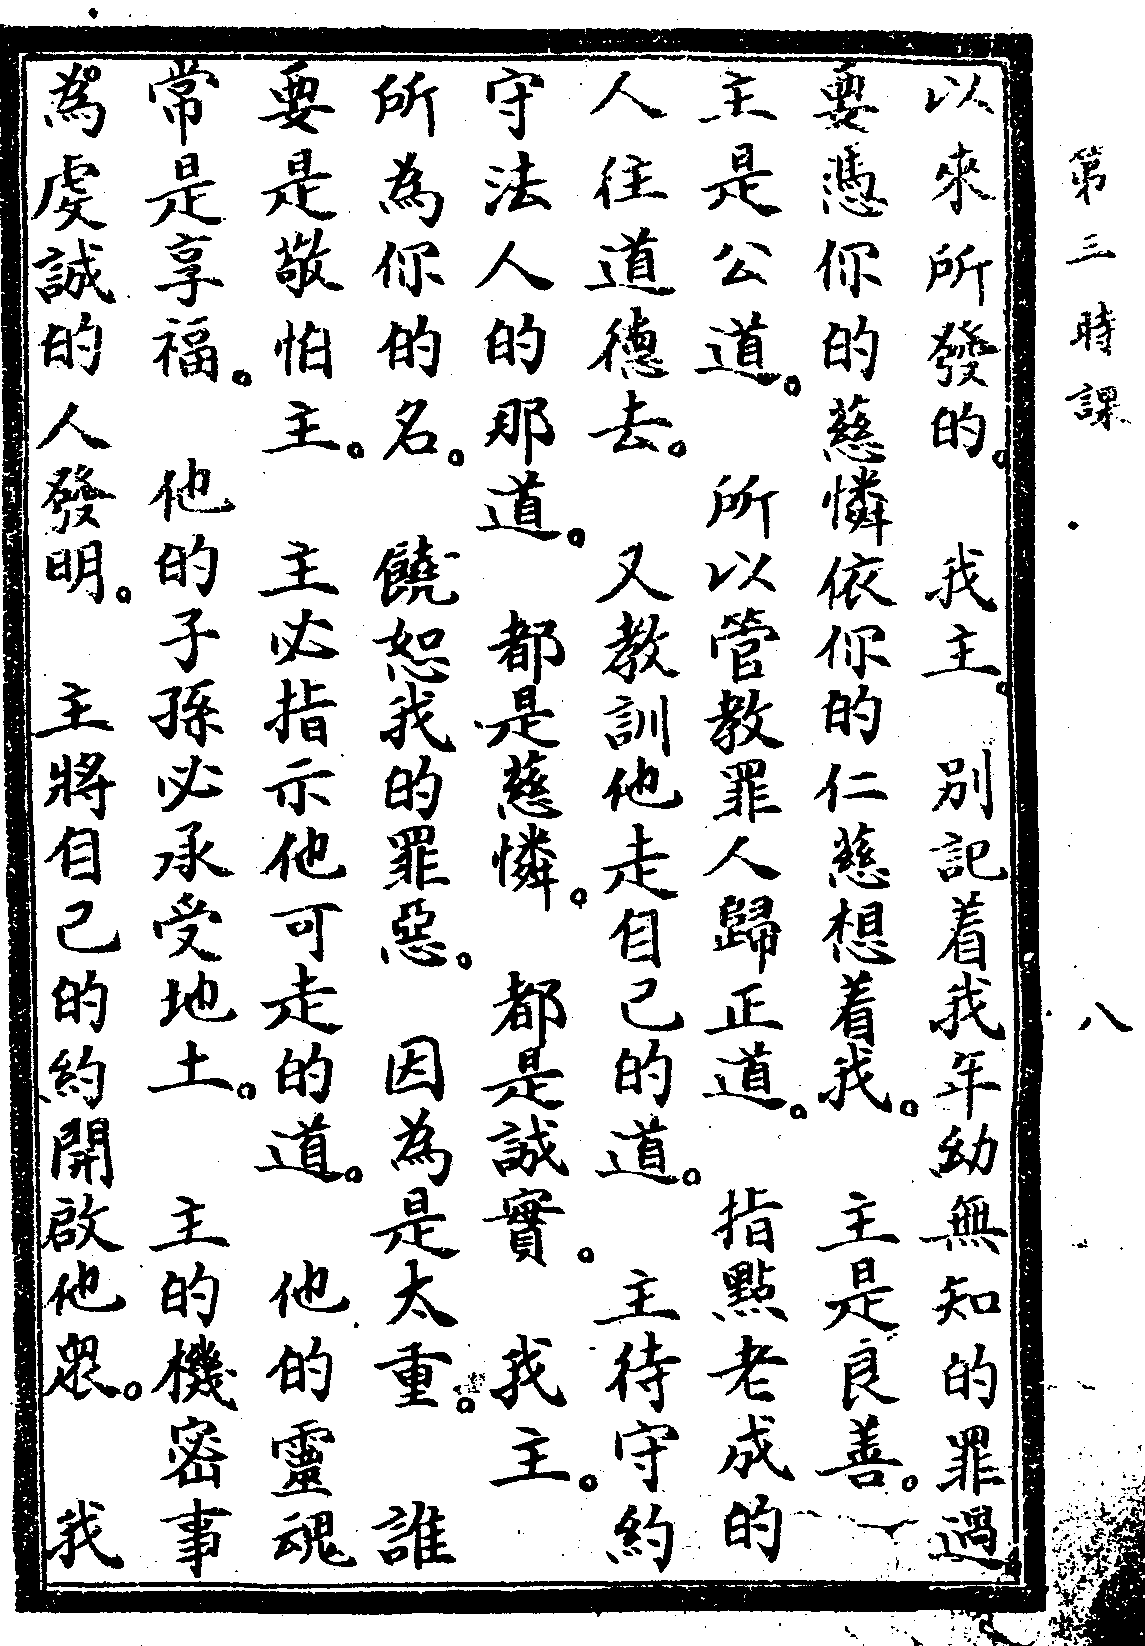 第三時課 八
以來所發的。我主。別記着我年幼無知的罪過
要憑你的慈憐依你的仁慈想着我。主是良善。
主是公道。所以管教罪人歸正道。指點老成的
人往道德去。又教訓他走自己的道。主待守約
守法人的那道。都是慈憐。都是誠實。我主。
所為你的名。饒恕我的罪惡。因為是太重。誰
要是敬怕主。主必指示他可走的道。他的靈魂
常是享福。他的子孫必承受地土。主的機密事
為虔誠的人發明。主將自己的約開啟他衆。我